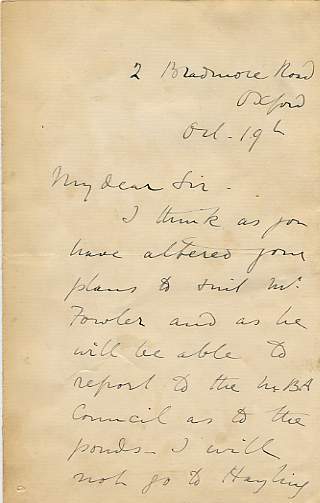 2 Bradmore Road
Oxford
Oct- 19th
My dear Sir -
I think as you
have altered your
plans to suit Mr.
Fowler and as he
will be able to
report to the M.B.A
Council as to the
ponds - I will
not go to Hayling